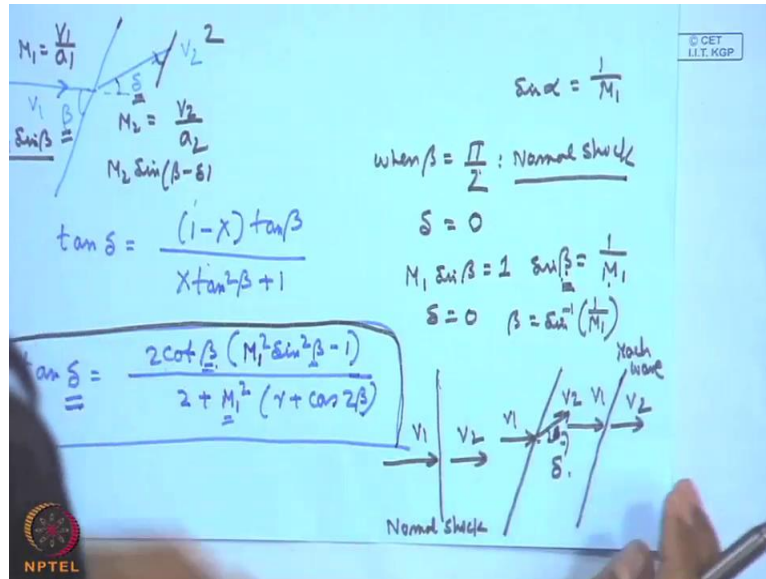 M₁ = V₁/a₁
V₂ 2
δ
V₁ β
sinβ =
M₂ = V₂/a₂
M₂ sin(β-δ)
tan δ = (1-x) tanβ / x tan²β + 1
tan δ = 2cot β (M₁² sin²β - 1) / 2 + M₁² (γ + cos 2β)
© CET
I.I.T. KGP
sin α = 1/M₁
when β = π/2 : Normal Shock
δ = 0
M₁ sin β = 1 sin β = 1/M₁
δ = 0 β = sin⁻¹(1/M₁)
Mach
wave
V₁ V₂ V₁ V₂ V₁ V₂
δ
Normal Shock
NPTEL